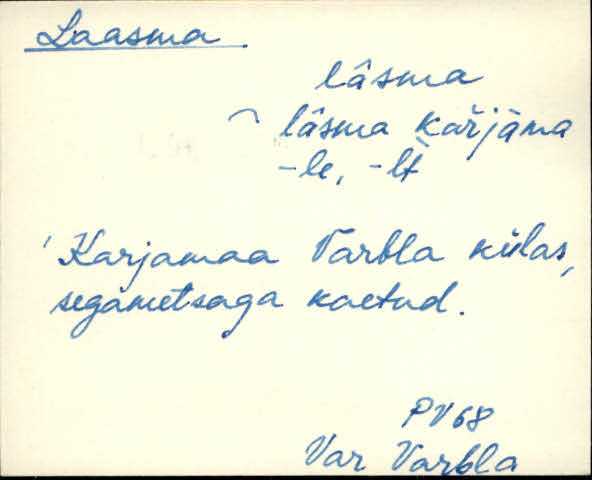 Laasma.
lâsma
⁓ lâsma kařjäma
-le, -lt
'Karjamaa Varbla külas,
segametsaga kaetud.
PV68
Var Varbla